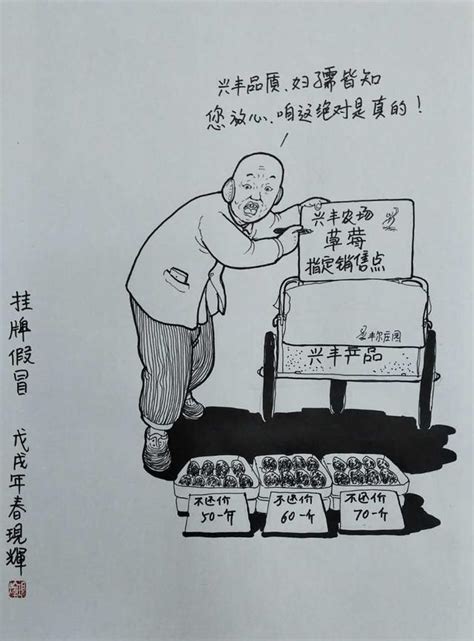 兴丰品质、妇孺皆知
您放心、咱这绝对是真的！
兴丰农场
草莓
指定销售点
丰尔庄园
兴丰产品
不还价
50一斤
不还价
60一斤
不还价
70一斤
挂牌假冒
戊戌年春現輝